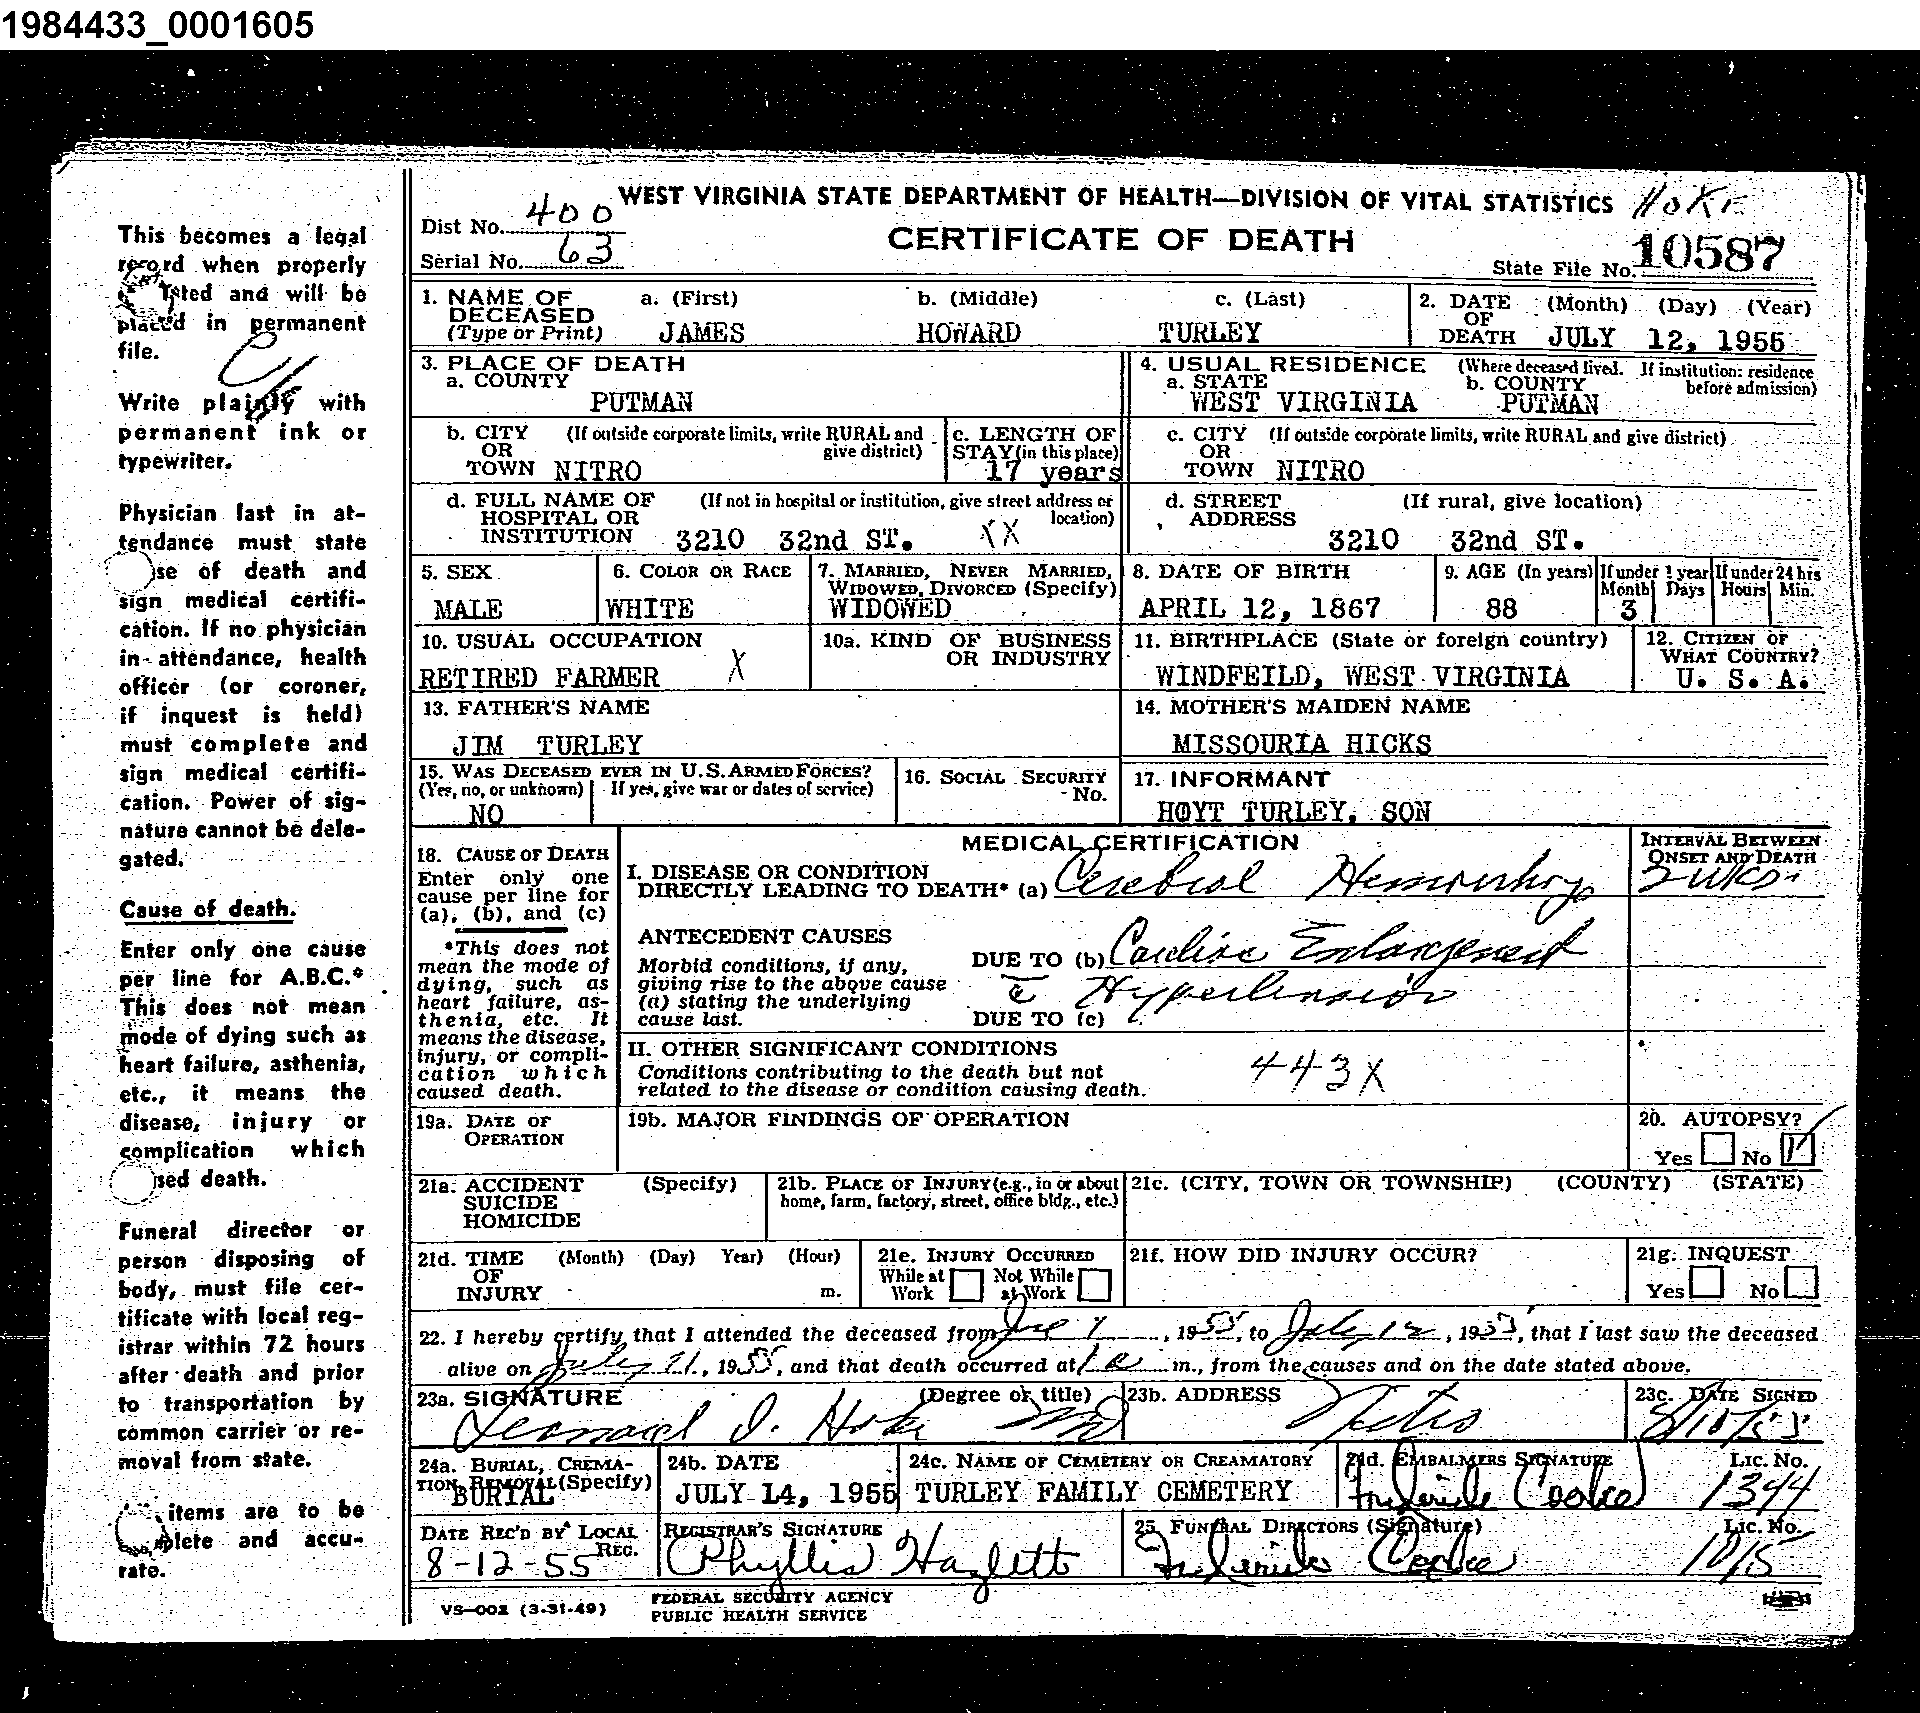 1984433_0001605
This becomes a legal
record when properly
ted and will be
placed in permanent
file.
Write plainly with
permanent ink or
typewriter.
Physician last in at-
tendance must state
se of death and
sign medical certifi-
cation. If no physician
in attendance, health
officer (or coroner,
if inquest is held)
must complete and
sign medical certifi-
cation. Power of sig-
nature cannot be dele-
gated.
Cause of death.
Enter only one cause
per line for A.B.C.*
This does not mean
mode of dying such as
heart failure, asthenia,
etc., it means the
disease, injury or
complication which
sed death.
Funeral director or
person disposing of
body, must file cer-
tificate with local reg-
istrar within 72 hours
after death and prior
to transportation by
common carrier or re-
moval from state.
items are to be
plete and accu-
rate.
WEST VIRGINIA STATE DEPARTMENT OF HEALTH—DIVISION OF VITAL STATISTICS Hoke
Dist No. 400
CERTIFICATE OF DEATH
Serial No. 63
State File No. 10587
1. NAME OF DECEASED (Type or Print) a. (First) b. (Middle) c. (Last)
JAMES HOWARD TURLEY
2. DATE OF DEATH (Month) (Day) (Year)
JULY 12, 1955
3. PLACE OF DEATH
a. COUNTY
PUTMAN
4. USUAL RESIDENCE (Where deceased lived. If institution: residence before admission)
a. STATE b. COUNTY
WEST VIRGINIA PUTMAN
b. CITY OR TOWN (If outside corporate limits, write RURAL and give district)
NITRO
c. LENGTH OF STAY (in this place)
17 years
c. CITY OR TOWN (If outside corporate limits, write RURAL and give district)
NITRO
d. FULL NAME OF HOSPITAL OR INSTITUTION (If not in hospital or institution, give street address or location)
3210 32nd ST. XX
d. STREET ADDRESS (If rural, give location)
3210 32nd ST.
5. SEX
MALE
6. COLOR OR RACE
WHITE
7. MARRIED, NEVER MARRIED, WIDOWED, DIVORCED (Specify)
WIDOWED
8. DATE OF BIRTH
APRIL 12, 1867
9. AGE (In years)
88
If under 1 year Month Days
3
If under 24 hrs Hours Min.
10. USUAL OCCUPATION
RETIRED FARMER X
10a. KIND OF BUSINESS OR INDUSTRY
11. BIRTHPLACE (State or foreign country)
WINDFEILD, WEST VIRGINIA
12. CITIZEN OF WHAT COUNTRY?
U. S. A.
13. FATHER'S NAME
JIM TURLEY
14. MOTHER'S MAIDEN NAME
MISSOURIA HICKS
15. WAS DECEASED EVER IN U.S. ARMED FORCES?
(Yes, no, or unknown) If yes, give war or dates of service)
NO
16. SOCIAL SECURITY No.
17. INFORMANT
HOYT TURLEY, SON
MEDICAL CERTIFICATION
INTERVAL BETWEEN ONSET AND DEATH
18. CAUSE OF DEATH
Enter only one
cause per line for
(a), (b), and (c)
*This does not
mean the mode of
dying, such as
heart failure, as-
thenia, etc. It
means the disease,
injury, or compli-
cation which
caused death.
I. DISEASE OR CONDITION
DIRECTLY LEADING TO DEATH* (a) Cerebral Hemorrhage wks.
ANTECEDENT CAUSES
Morbid conditions, if any,
giving rise to the above cause
(a) stating the underlying
cause last.
DUE TO (b) Cardiac Enlargement
c̄ Hypertension
DUE TO (c)
II. OTHER SIGNIFICANT CONDITIONS
Conditions contributing to the death but not
related to the disease or condition causing death.
443X
19a. DATE OF OPERATION
19b. MAJOR FINDINGS OF OPERATION
20. AUTOPSY?
Yes No
21a. ACCIDENT SUICIDE HOMICIDE (Specify)
21b. PLACE OF INJURY (e.g., in or about
home, farm, factory, street, office bldg., etc.)
21c. (CITY, TOWN OR TOWNSHIP) (COUNTY) (STATE)
21d. TIME OF INJURY (Month) (Day) Year) (Hour) m.
21e. INJURY OCCURRED
While at Work Not While at Work
21f. HOW DID INJURY OCCUR?
21g. INQUEST
Yes No
22. I hereby certify that I attended the deceased from , 1955, to July 12, 1955, that I last saw the deceased
alive on July 11, 1955, and that death occurred at 1 a m., from the causes and on the date stated above.
23a. SIGNATURE (Degree or title)
Leonard I. Hoke MD
23b. ADDRESS
Nitro
23c. DATE SIGNED
8/10/55
24a. BURIAL, CREMA-
TION, REMOVAL (Specify)
BURIAL
24b. DATE
JULY 14, 1955
24c. NAME OF CEMETERY OR CREAMATORY
TURLEY FAMILY CEMETERY
24d. EMBALMERS SIGNATURE LIC. NO.
Cooke 1344
DATE REC'D BY LOCAL REG.
8-12-55
REGISTRAR'S SIGNATURE
Phyllis Hazlett
25. FUNERAL DIRECTORS (Signature) LIC. NO.
Cooke 1015
VS—002 (3-31-49)
FEDERAL SECURITY AGENCY
PUBLIC HEALTH SERVICE